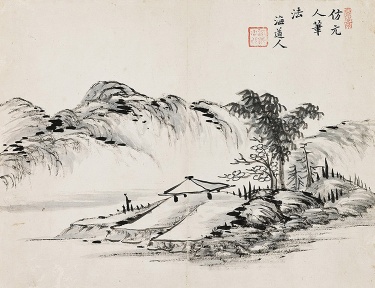 仿元
人筆
法
海道人